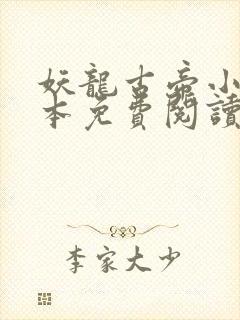 妖龍古帝小
本免費閱讀
李家大少